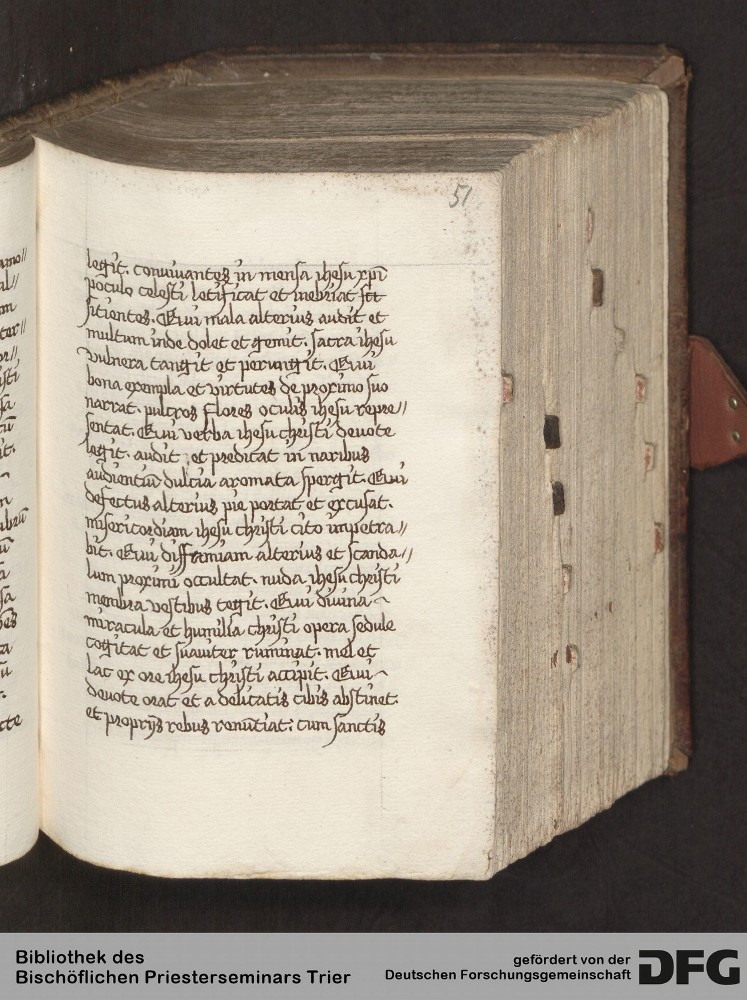 51
legit. conviuantes in mensa ihesu xpi
poculo celesti letificat et inebriat
sitientes. Qui mala alterius audit et
multum inde dolet et gemit. sacra ihesu
vulnera tangit et perungit. Qui
bona exempla et virtutes de proximo suo
narrat. pulcros flores oculis ihesu repre//
sentat. Qui verba ihesu christi deuote
legit. audit et predicat in naribus
audientiū dulcia aromata spergit. Qui
defectus alterius pie portat et excusat.
misericordiam ihesu christi cito impetra//
bit. Qui diffamiam alterius et scanda//
lum proximi occultat. nuda ihesu christi
membra vestibus tegit. Qui diuina
miracula et humilia christi opera sedule
cogitat et suauiter ruminat. mel et
lac ex ore ihesu christi accipit. Qui
deuote orat et a delicatis cibis abstinet.
et proprijs rebus renūtiat. cum sanctis
Bibliothek des
Bischöflichen Priesterseminars Trier
gefördert von der
Deutschen Forschungsgemeinschaft
DFG